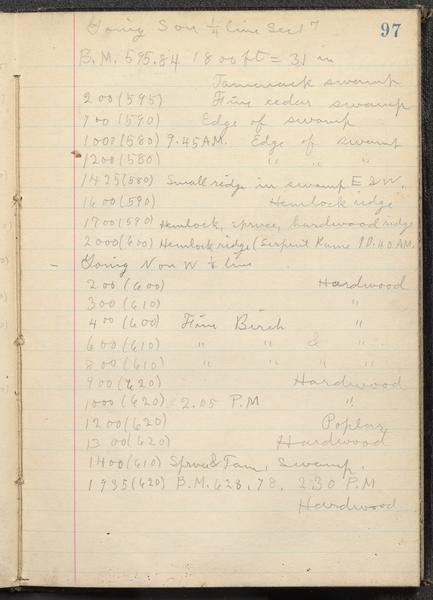 97
Going S on 1/4 line Sec 17
B.M. 595.84 1800 ft = 31 in
Tamarack swamp
200 (595) Fine cedar swamp
900 (590) Edge of swamp
1000 (580) 9.45 AM. Edge of swamp
1200 (580) " " "
1425 (580) Small ridge in swamp E & W.
1600 (590) Hemlock ridge
1700 (590) Hemlock, spruce, hardwood ridge
2000 (600) Hemlock ridge (Serpent 10.40 AM.
– Going N on W 1/4 line
200 (600) Hardwood
300 (610) "
400 (600) Fine Birch "
600 (610) " " & "
800 (610) " " " "
900 (620) Hardwood
1000 (620) 2.05 P.M "
1200 (620) Poplar
1300 (620) Hardwood
1400 (610) Spruce & Tam, Swamp.
1935 (620) B.M. 628.78. 2.30 P.M
Hardwood